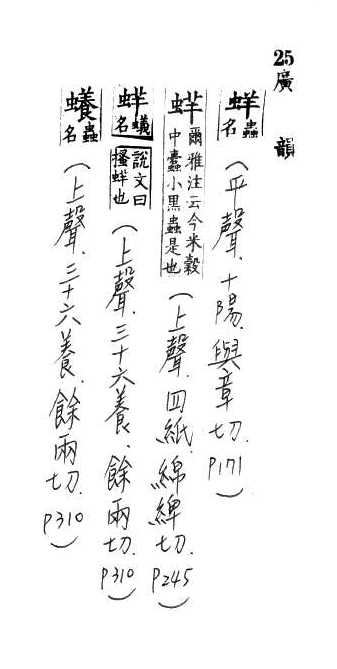 25廣韻
蛘蟲名(平聲.十陽.與章切.P171)
蝆爾雅注云今米穀中蠹小黑蟲是也(上聲.四紙.綿綼切.P245)
蛘蟻名說文曰搔蛘也(上聲.三十六養.餘兩切.P310)
𧓲蟲名(上聲.三十六養.餘兩切.P310)